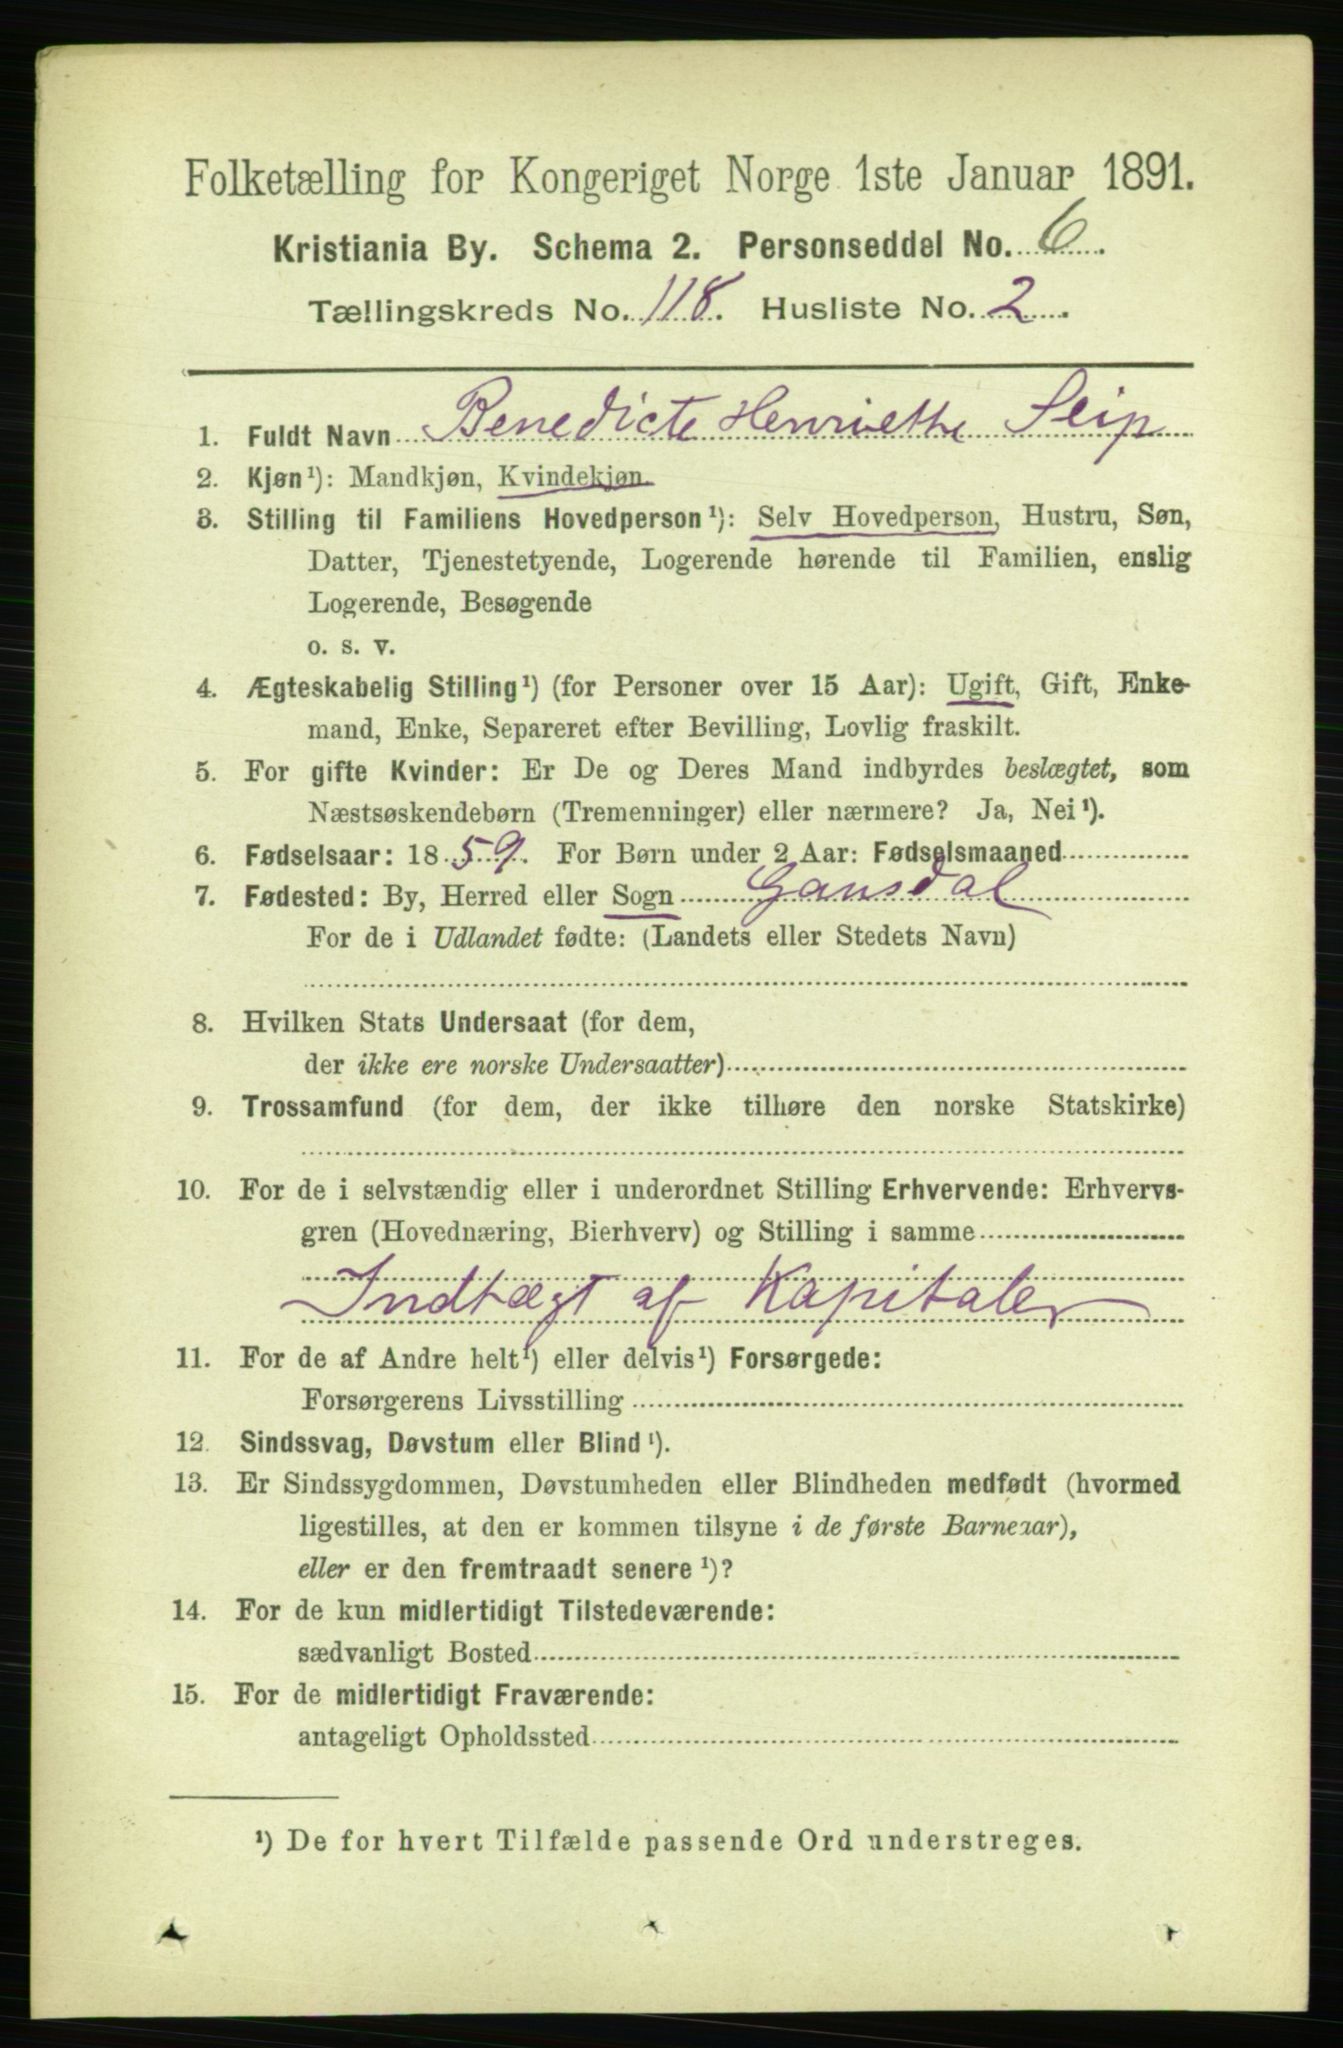 Folketælling for Kongeriget Norge 1ste Januar 1891.
Kristiania By. Schema 2. Personseddel No. 6.
Tællingskreds No. 118. Husliste No. 2.
1. Fuldt Navn Benedicte Henriette Seip
2. Kjøn¹): Mandkjøn, Kvindekjøn.
3. Stilling til Familiens Hovedperson¹): Selv Hovedperson, Hustru, Søn,
Datter, Tjenestetyende, Logerende hørende til Familien, enslig
Logerende, Besøgende
o. s. v.
4. Ægteskabelig Stilling¹) (for Personer over 15 Aar): Ugift, Gift, Enke-
mand, Enke, Separeret efter Bevilling, Lovlig fraskilt.
5. For gifte Kvinder: Er De og Deres Mand indbyrdes beslægtet, som
Næstsøskendebørn (Tremenninger) eller nærmere? Ja, Nei¹).
6. Fødselsaar: 1859. For Børn under 2 Aar: Fødselsmaaned
7. Fødested: By, Herred eller Sogn Gausdal
For de i Udlandet fødte: (Landets eller Stedets Navn)
8. Hvilken Stats Undersaat (for dem,
der ikke ere norske Undersaatter)
9. Trossamfund (for dem, der ikke tilhøre den norske Statskirke)
10. For de i selvstændig eller i underordnet Stilling Erhvervende: Erhvervs-
gren (Hovednæring, Bierhverv) og Stilling i samme
Indtægt af Kapitaler
11. For de af Andre helt¹) eller delvis¹) Forsørgede:
Forsørgerens Livsstilling
12. Sindssvag, Døvstum eller Blind¹).
13. Er Sindssygdommen, Døvstumheden eller Blindheden medfødt (hvormed
ligestilles, at den er kommen tilsyne i de første Barneaar),
eller er den fremtraadt senere¹)?
14. For de kun midlertidigt Tilstedeværende:
sædvanligt Bosted
15. For de midlertidigt Fraværende:
antageligt Opholdssted
¹) De for hvert Tilfælde passende Ord understreges.